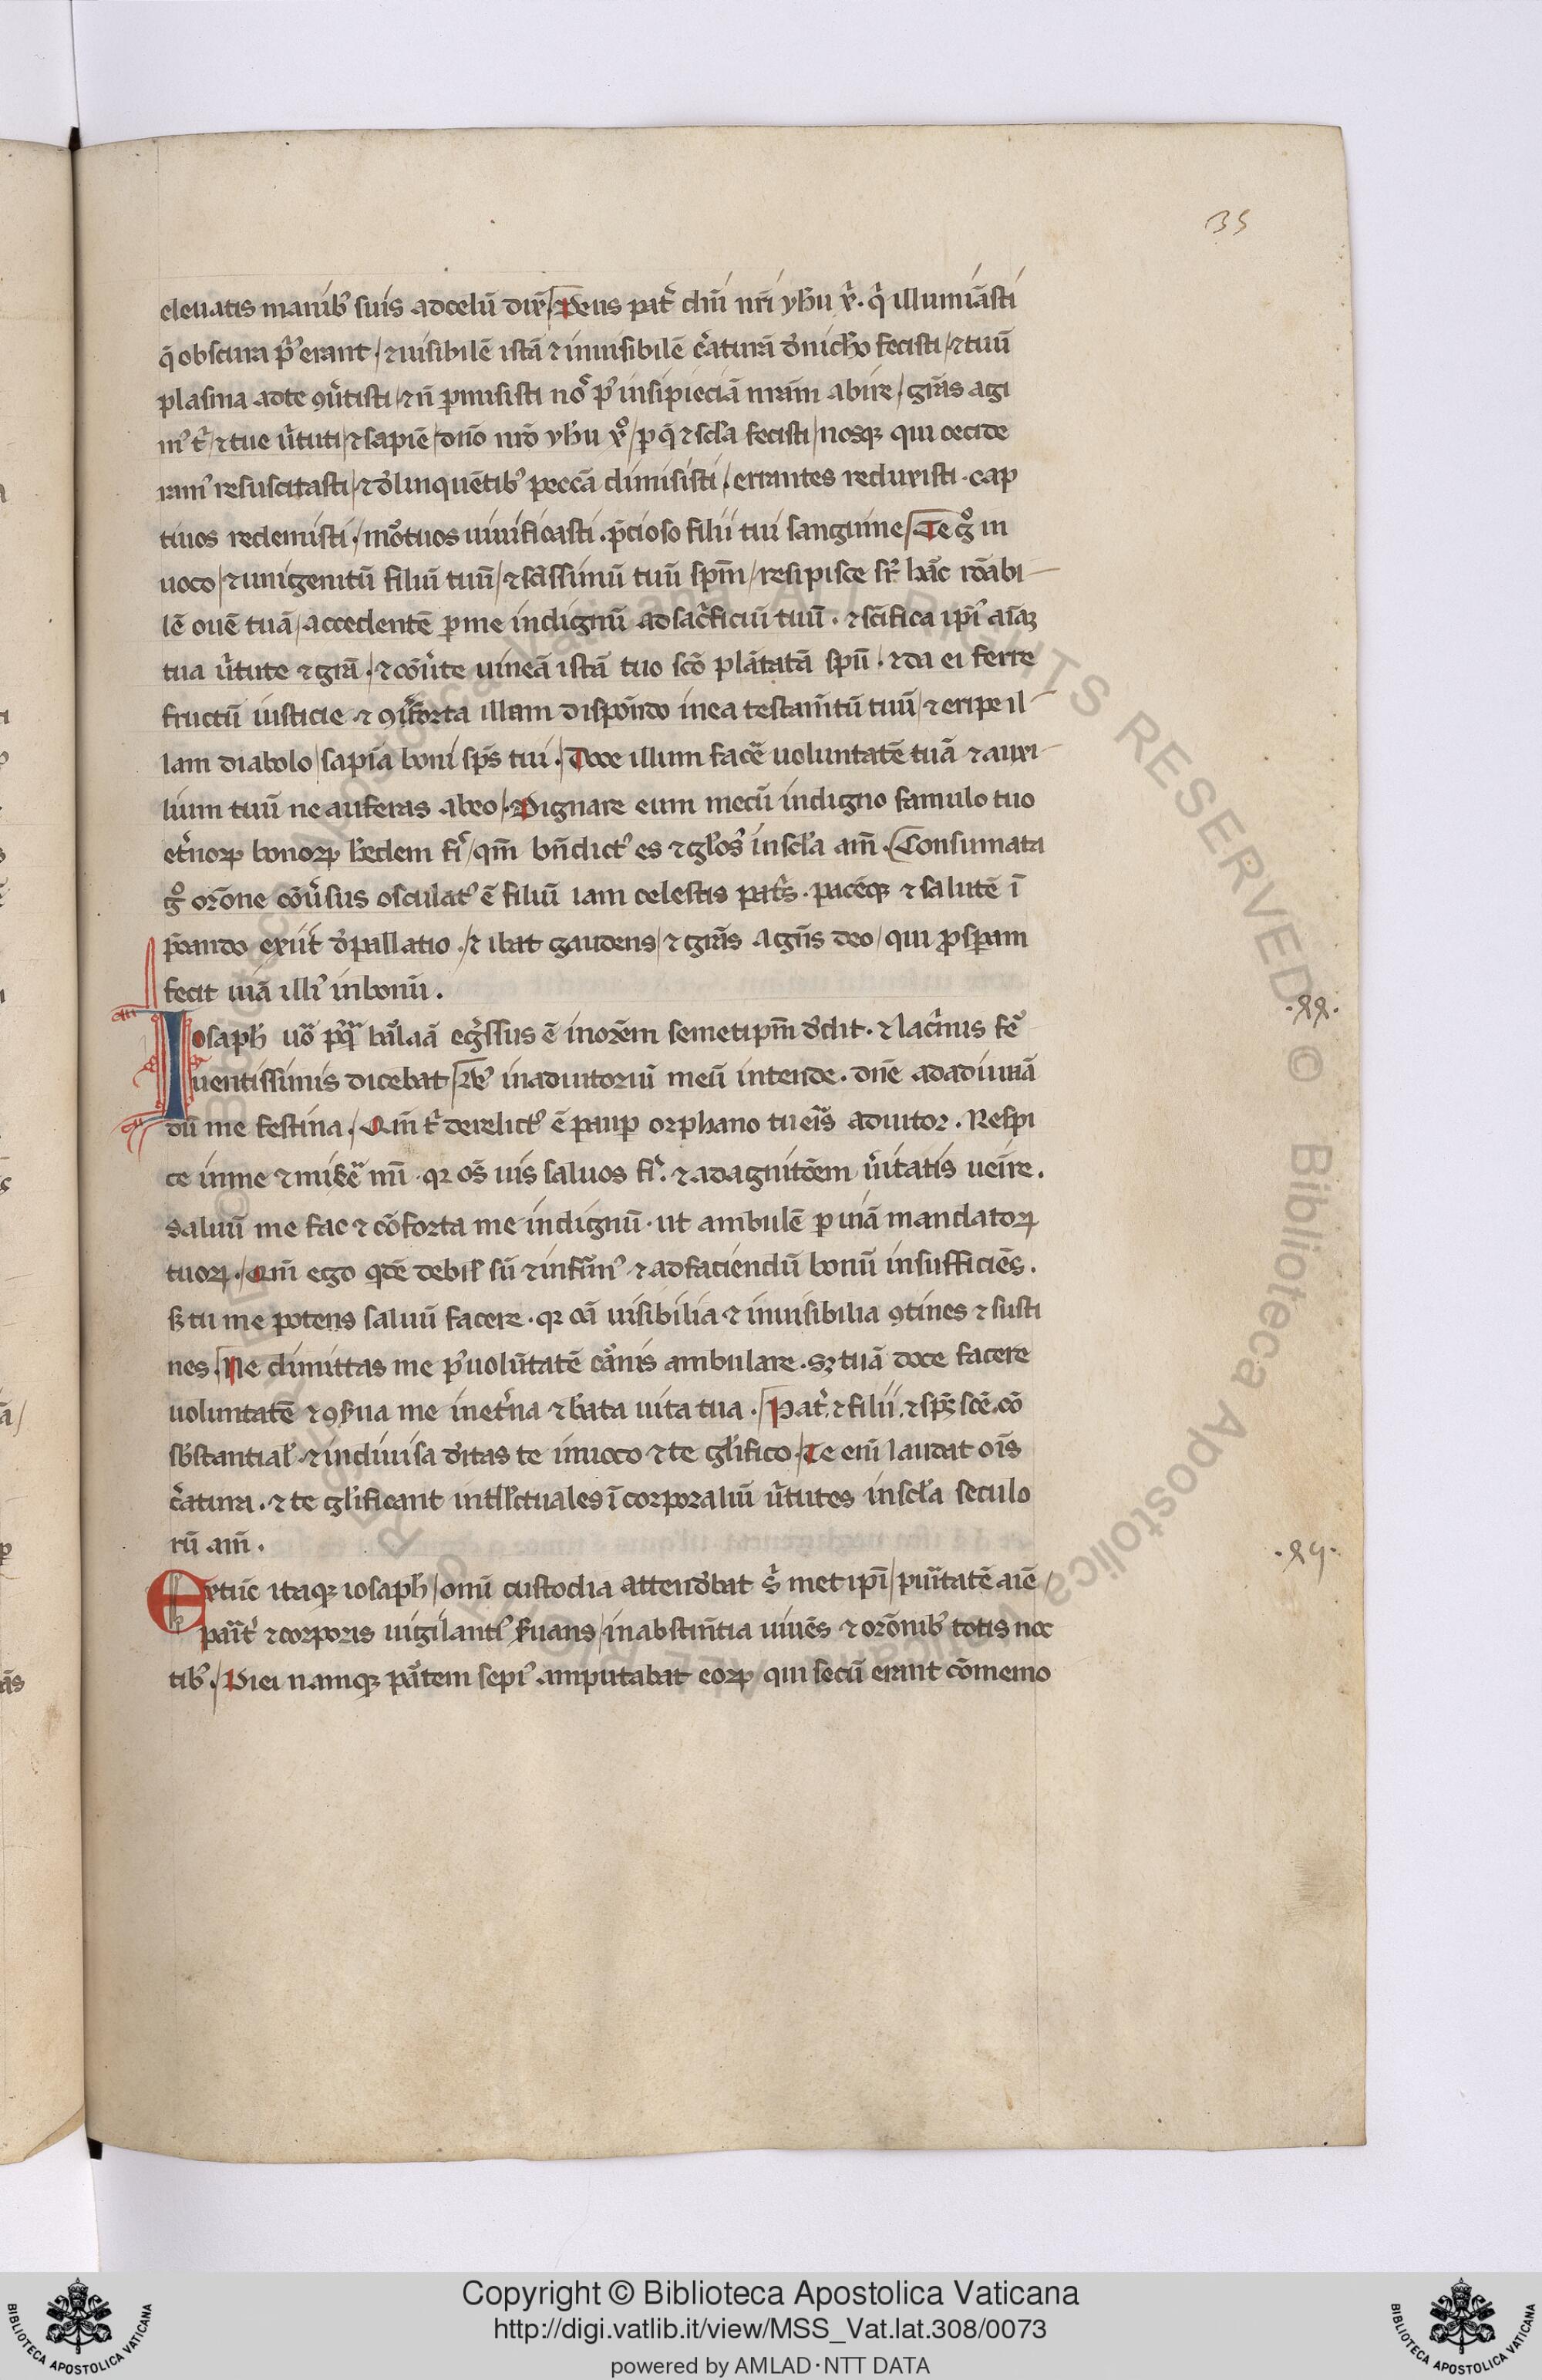 35
eleuatis manibꝰ suis ad celū dix̄. Deus pat̉ dn̄i nr̄i yh̄u xp̄i. qͥ illumīasti
q̄ obscura pͥꝰ erant / ⁊ uisibilē istā ⁊ inuisibilē c̉aturā de nichͦ fecisti / ⁊ tuū
plasma ad te ꝯủtisti / ⁊ n̄ ꝑmisisti nos̉ pꝰ insipiēciā nr̄am abire / gr̄as agi
mꝰ tͥ / ⁊ tue ủtuti / ⁊ sapiē / dn̄o nr̄o yh̄u xͦ / ꝑ qͥ ⁊ sc̄la fecisti / nosqꝫ qui cecide
ramꝰ resuscitasti / ⁊ delinquētibꝰ peccā dimisisti / errantes reduxisti . cap
tiuos redemisti / mortuos uiuificasti . p̄cioso filii tui sanguine / Te gͦ in
uoco / ⁊ unigenitū filiū tuū / ⁊ sc̄issimū tuū sp̄m / respisce sr̉ hāc rōabi
lē ouē tuā / accedentē ꝑ me indignū ad sac̉ficiū tuū . ⁊ sc̄ifica ipīꝰ aīaꝫ
tua ủtute ⁊ gr̄a . ⁊ cōủte uineā istā tuo sc̄o plātatā sp̄u . ⁊ da ei ferre
fructū iusticie ⁊ ꝯforta illam disponēdo in ea testam̄tū tuū / ⁊ eripe il
lam diabolo / sapīa boni sp̄s tui . Doce illum facẻ uoluntatē tuā ⁊ auxi
lium tuū ne auferas ab eo . Dignare eum mecū indigno famulo tuo
et̉noꝝ bonoꝝ h̉edem fiͥ / qm̄ bn̄dictꝰ es ⁊ gl̄osꝰ in sc̄la am̄ . Consumata
gͦ orōne cōủsus osculatꝰ ē filiū iam celestis patͥs . pacēqꝫ ⁊ salutē ī
p̄cando exiit de pallatio . ⁊ ibat gaudens / ⁊ gr̄as agn̄s deo / qui ꝓsperam
fecit uiā illiꝰ in bonū .
Iosaph̄ uͦo pͦqͣ balͣaā eg̉ssus ē in orōem semetip̄m dedit . ⁊ lac̉mis fẻ
uentissimis dicebat / Deꝰ in adiutoriū meū intende . dn̄e ad adiuuā
dū me festina . Qm̄ tͥ derelictꝰ ē paup̄ orphano tu eris adiutor . Respi
ce in me ⁊ miserẻ mī . qꝛ oēs uis saluos fiͥ . ⁊ ad agnitōem ủitatis ueīre .
Saluū me fac ⁊ cōforta me indignū . ut ambulē ꝑ uiā mandatoꝝ
tuoꝝ . Qm̄ ego qͥdē debil̓ sū ⁊ infirmꝰ ⁊ ad faciendū bonū insufficiēs .
Sꝫ tu me potens saluū facere . qꝛ oīa uisibilia ⁊ inuisibilia ꝯtines ⁊ susti
nes . Ne dimittas me pꝰ uolūtatē carnis ambulare . sꝫ tuā doce facere
uoluntatē ⁊ ꝯs̉ua me in et̉na ⁊ b̄ata uita tua . Pat̉ . ⁊ filii . ⁊ sp̄s sc̄e . cō
sb̄stantial̓ ⁊ indiuisa deitas te inuoco ⁊ te gl̄ifico . Te enī laudat oīs
c̉atura . ⁊ te gl̄ificant intl̄l̄ctuales ī corporaliū ủtutes in sc̄la seculo
rū am̄ .
Ex tūc itaqꝫ iosaph̄ / omī custodia attendebat sͥ met ipī / puritatē aīe /
parit̉ ⁊ corporis uigilantiꝰ s̉uans / in abstin̄tia uiuēs ⁊ orōnibꝰ totis noc
tibꝰ . Diei namqꝫ partem sepiꝰ amputabat eoꝝ qui secū erant cōmemo
.88.
.89.
Copyright © Biblioteca Apostolica Vaticana
http://digi.vatlib.it/view/MSS_Vat.lat.308/0073
powered by AMLAD·NTT DATA
BIBLIOTECA APOSTOLICA VATICANA
BIBLIOTECA APOSTOLICA VATICANA